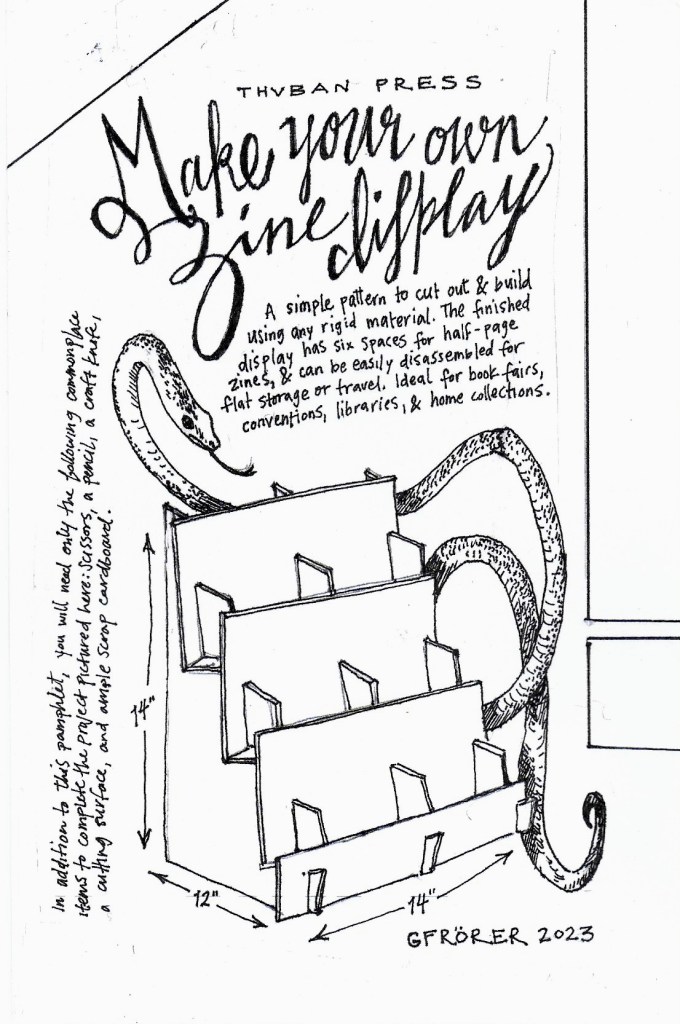 THVBAN PRESS
Make your own
zine display
A simple pattern to cut out & build
using any rigid material. The finished
display has six spaces for half-page
zines, & can be easily disassembled for
flat storage or travel. Ideal for book fairs,
conventions, libraries, & home collections.
In addition to this pamphlet, you will need only the following commonplace
items to complete the project pictured here: scissors, a pencil, a craft knife,
a cutting surface, and ample scrap cardboard.
14"
12"
14"
GFRÖRER 2023